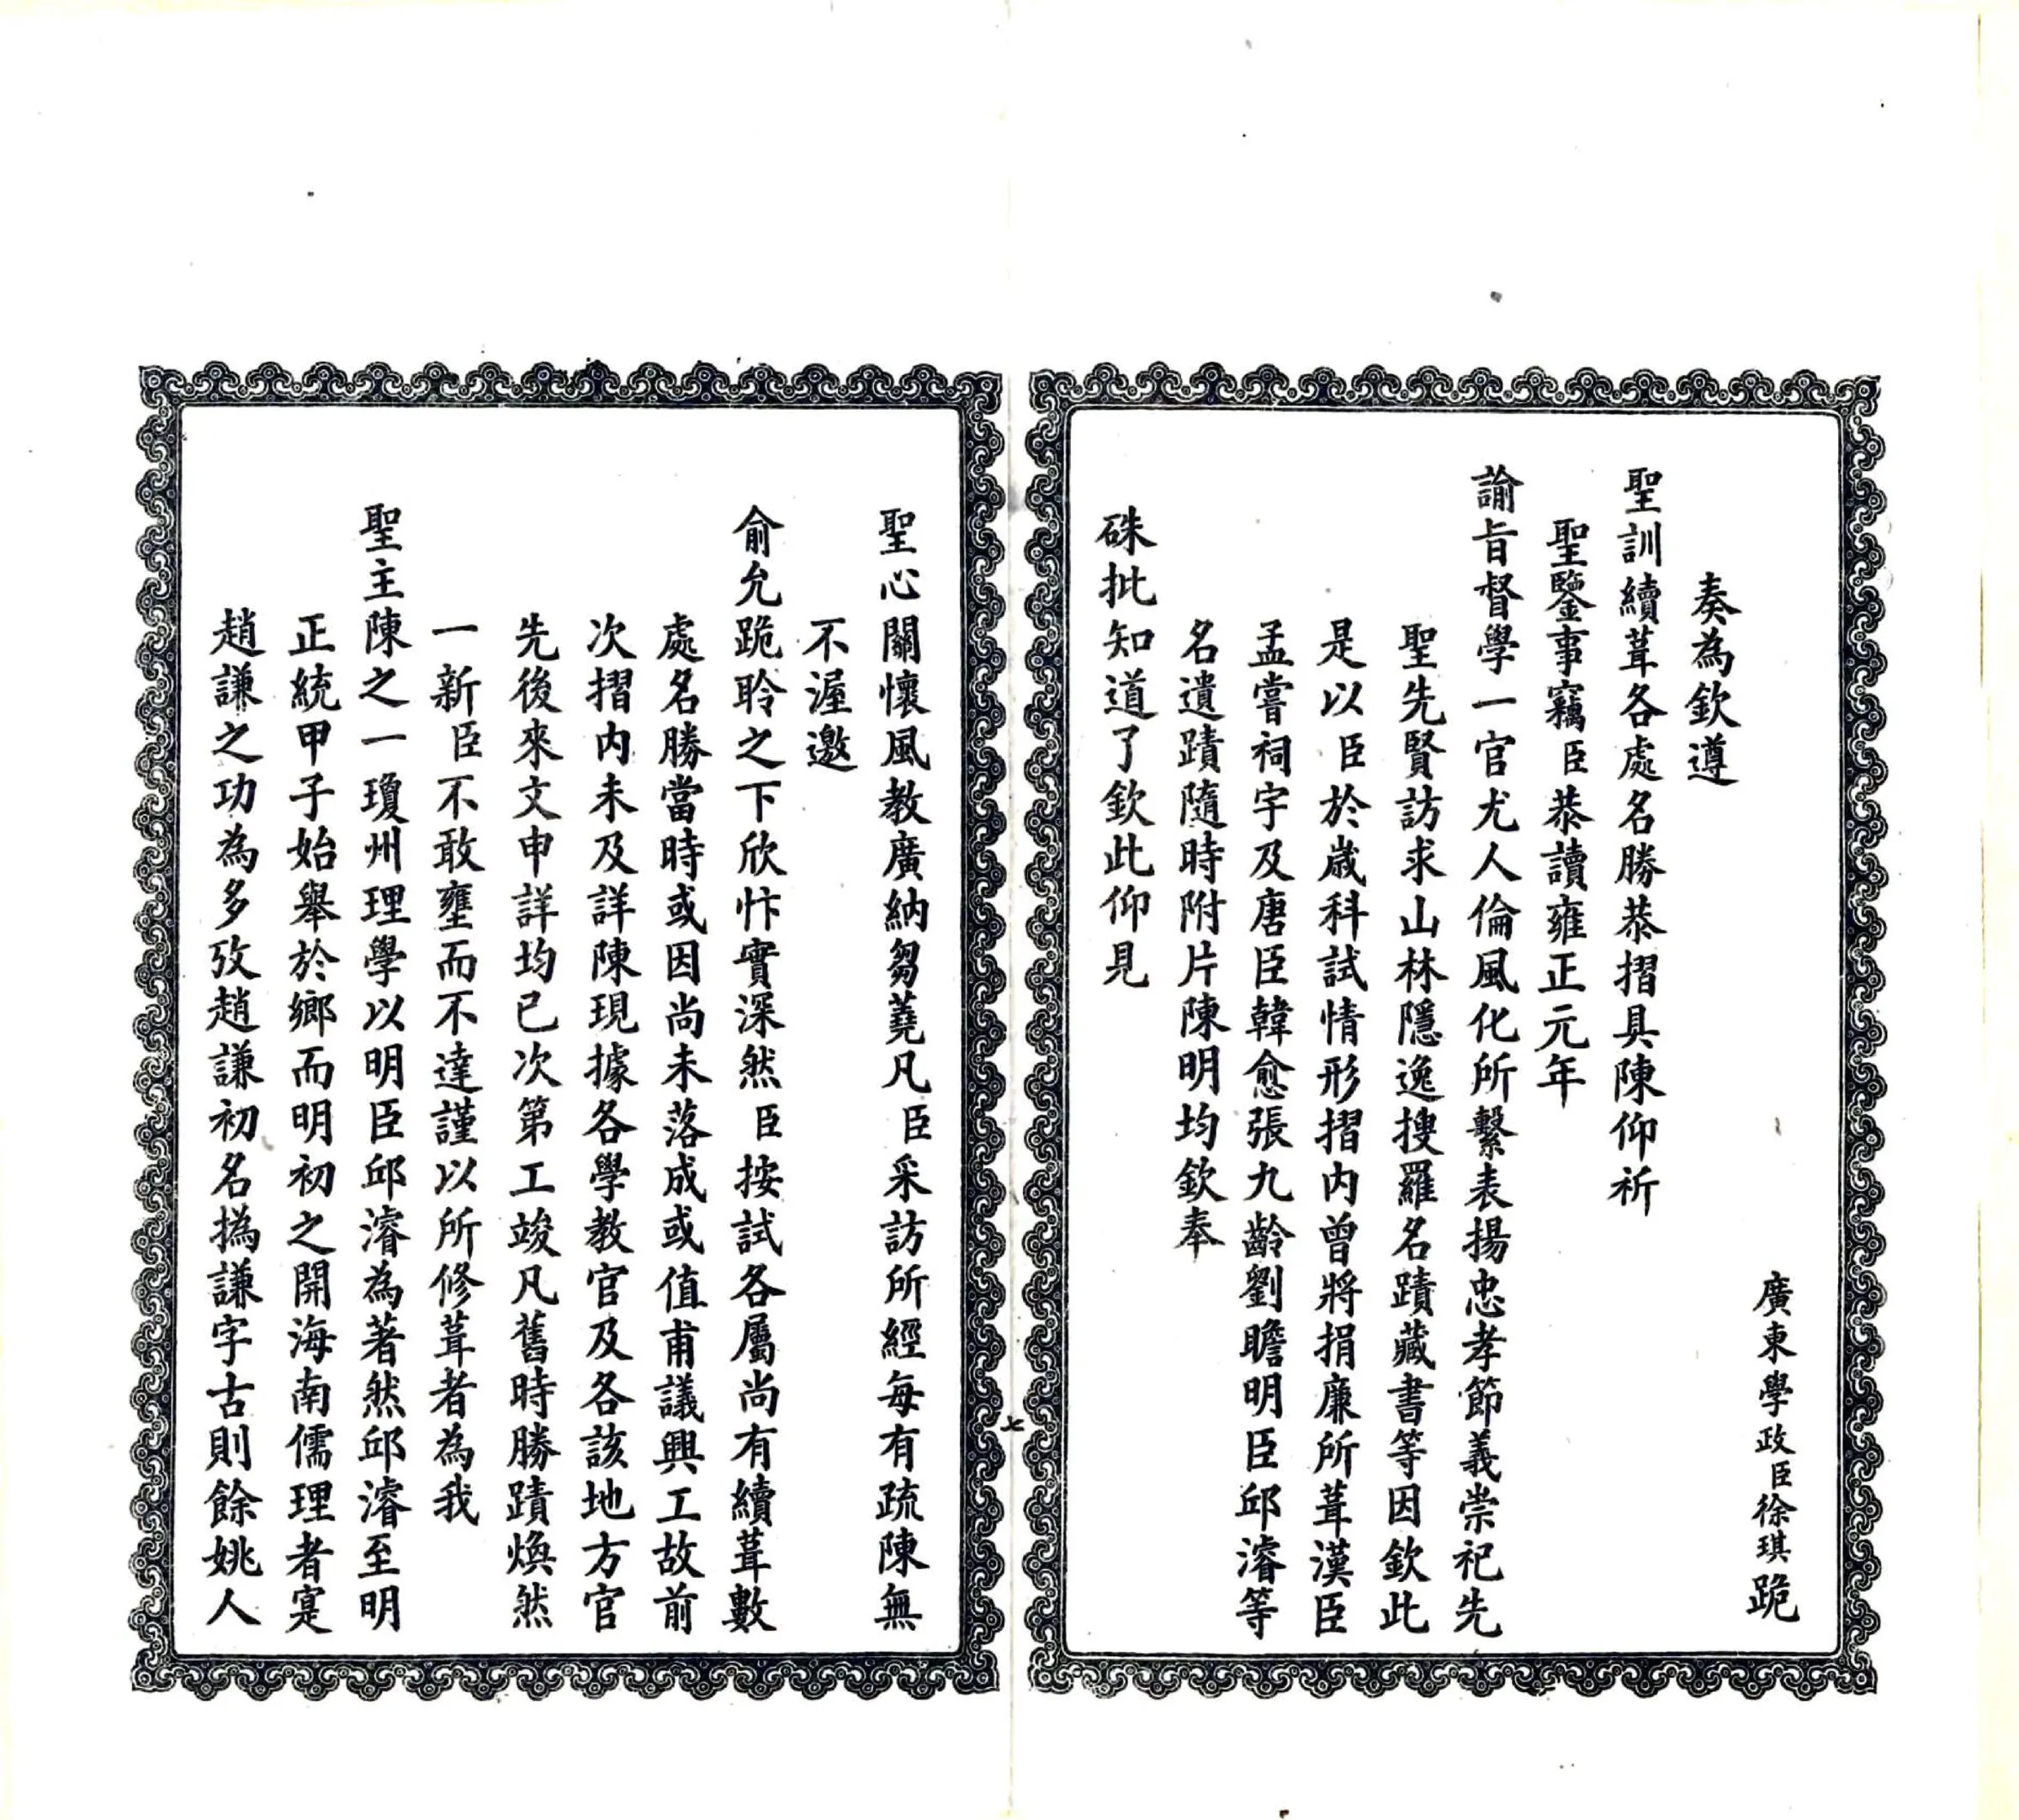 廣東學政臣徐琪跪
奏為欽遵
聖訓續葺各處名勝恭摺具陳仰祈
聖鑒事竊臣恭讀雍正元年
諭旨督學一官尤人倫風化所繫表揚忠孝節義崇祀先
聖先賢訪求山林隱逸搜羅名蹟藏書等因欽此
是以臣於歲科試情形摺内曾將捐廉所葺漢臣
孟嘗祠宇及唐臣韓愈張九齡劉瞻明臣邱濬等
名遺蹟隨時附片陳明均欽奉
硃批知道了欽此仰見
七
聖心關懷風教廣納芻蕘凡臣采訪所經每有疏陳無
不渥邀
俞允跪聆之下欣忭實深然臣按試各屬尚有續葺數
處名勝當時或因尚未落成或值甫議興工故前
次摺内未及詳陳現據各學教官及各該地方官
先後來文申詳均已次第工竣凡舊時勝蹟煥然
一新臣不敢壅而不達謹以所修葺者為我
聖主陳之一瓊州理學以明臣邱濬為著然邱濬至明
正統甲子始舉於鄉而明初之開海南儒理者寔
趙謙之功為多攷趙謙初名撝謙字古則餘姚人